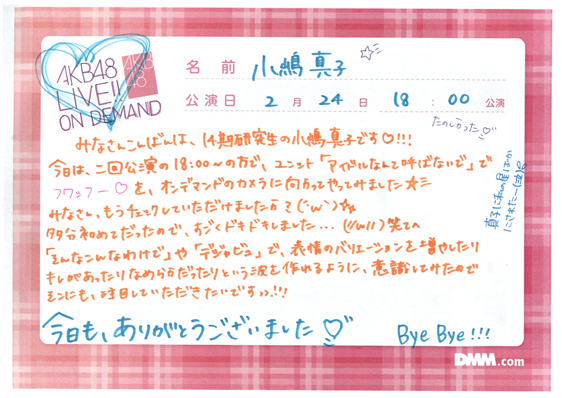 AKB48
LIVE!!
ON DEMAND
AKB
48
名前 小嶋真子
公演日 2月24日 18:00公演
たのしかった♡
みなさんこんばんは、14期研究生の小嶋真子です♡!!!
今日は、二回公演の18:00〜の方で、ユニット「アイドルなんて呼ばないで」で
フワッフー♡を、オンデマンドのカメラに向かってやってみました☆彡
みなさん、もうチェックしていただけましたか?(´ω`)☆
多分初めてだったので、すごくドキドキしました…(//ω//)笑て へ
「そんなこんなわけで」や「デジャビュ」で、表情のバリエーションを増やしたり
キレがあったりなめらかだったりという波を作れるように、意識してみたので
そこにも、注目していただきたいです>>.!!!
今日も、ありがとうございました♡
Bye Bye!!!
DMM.com